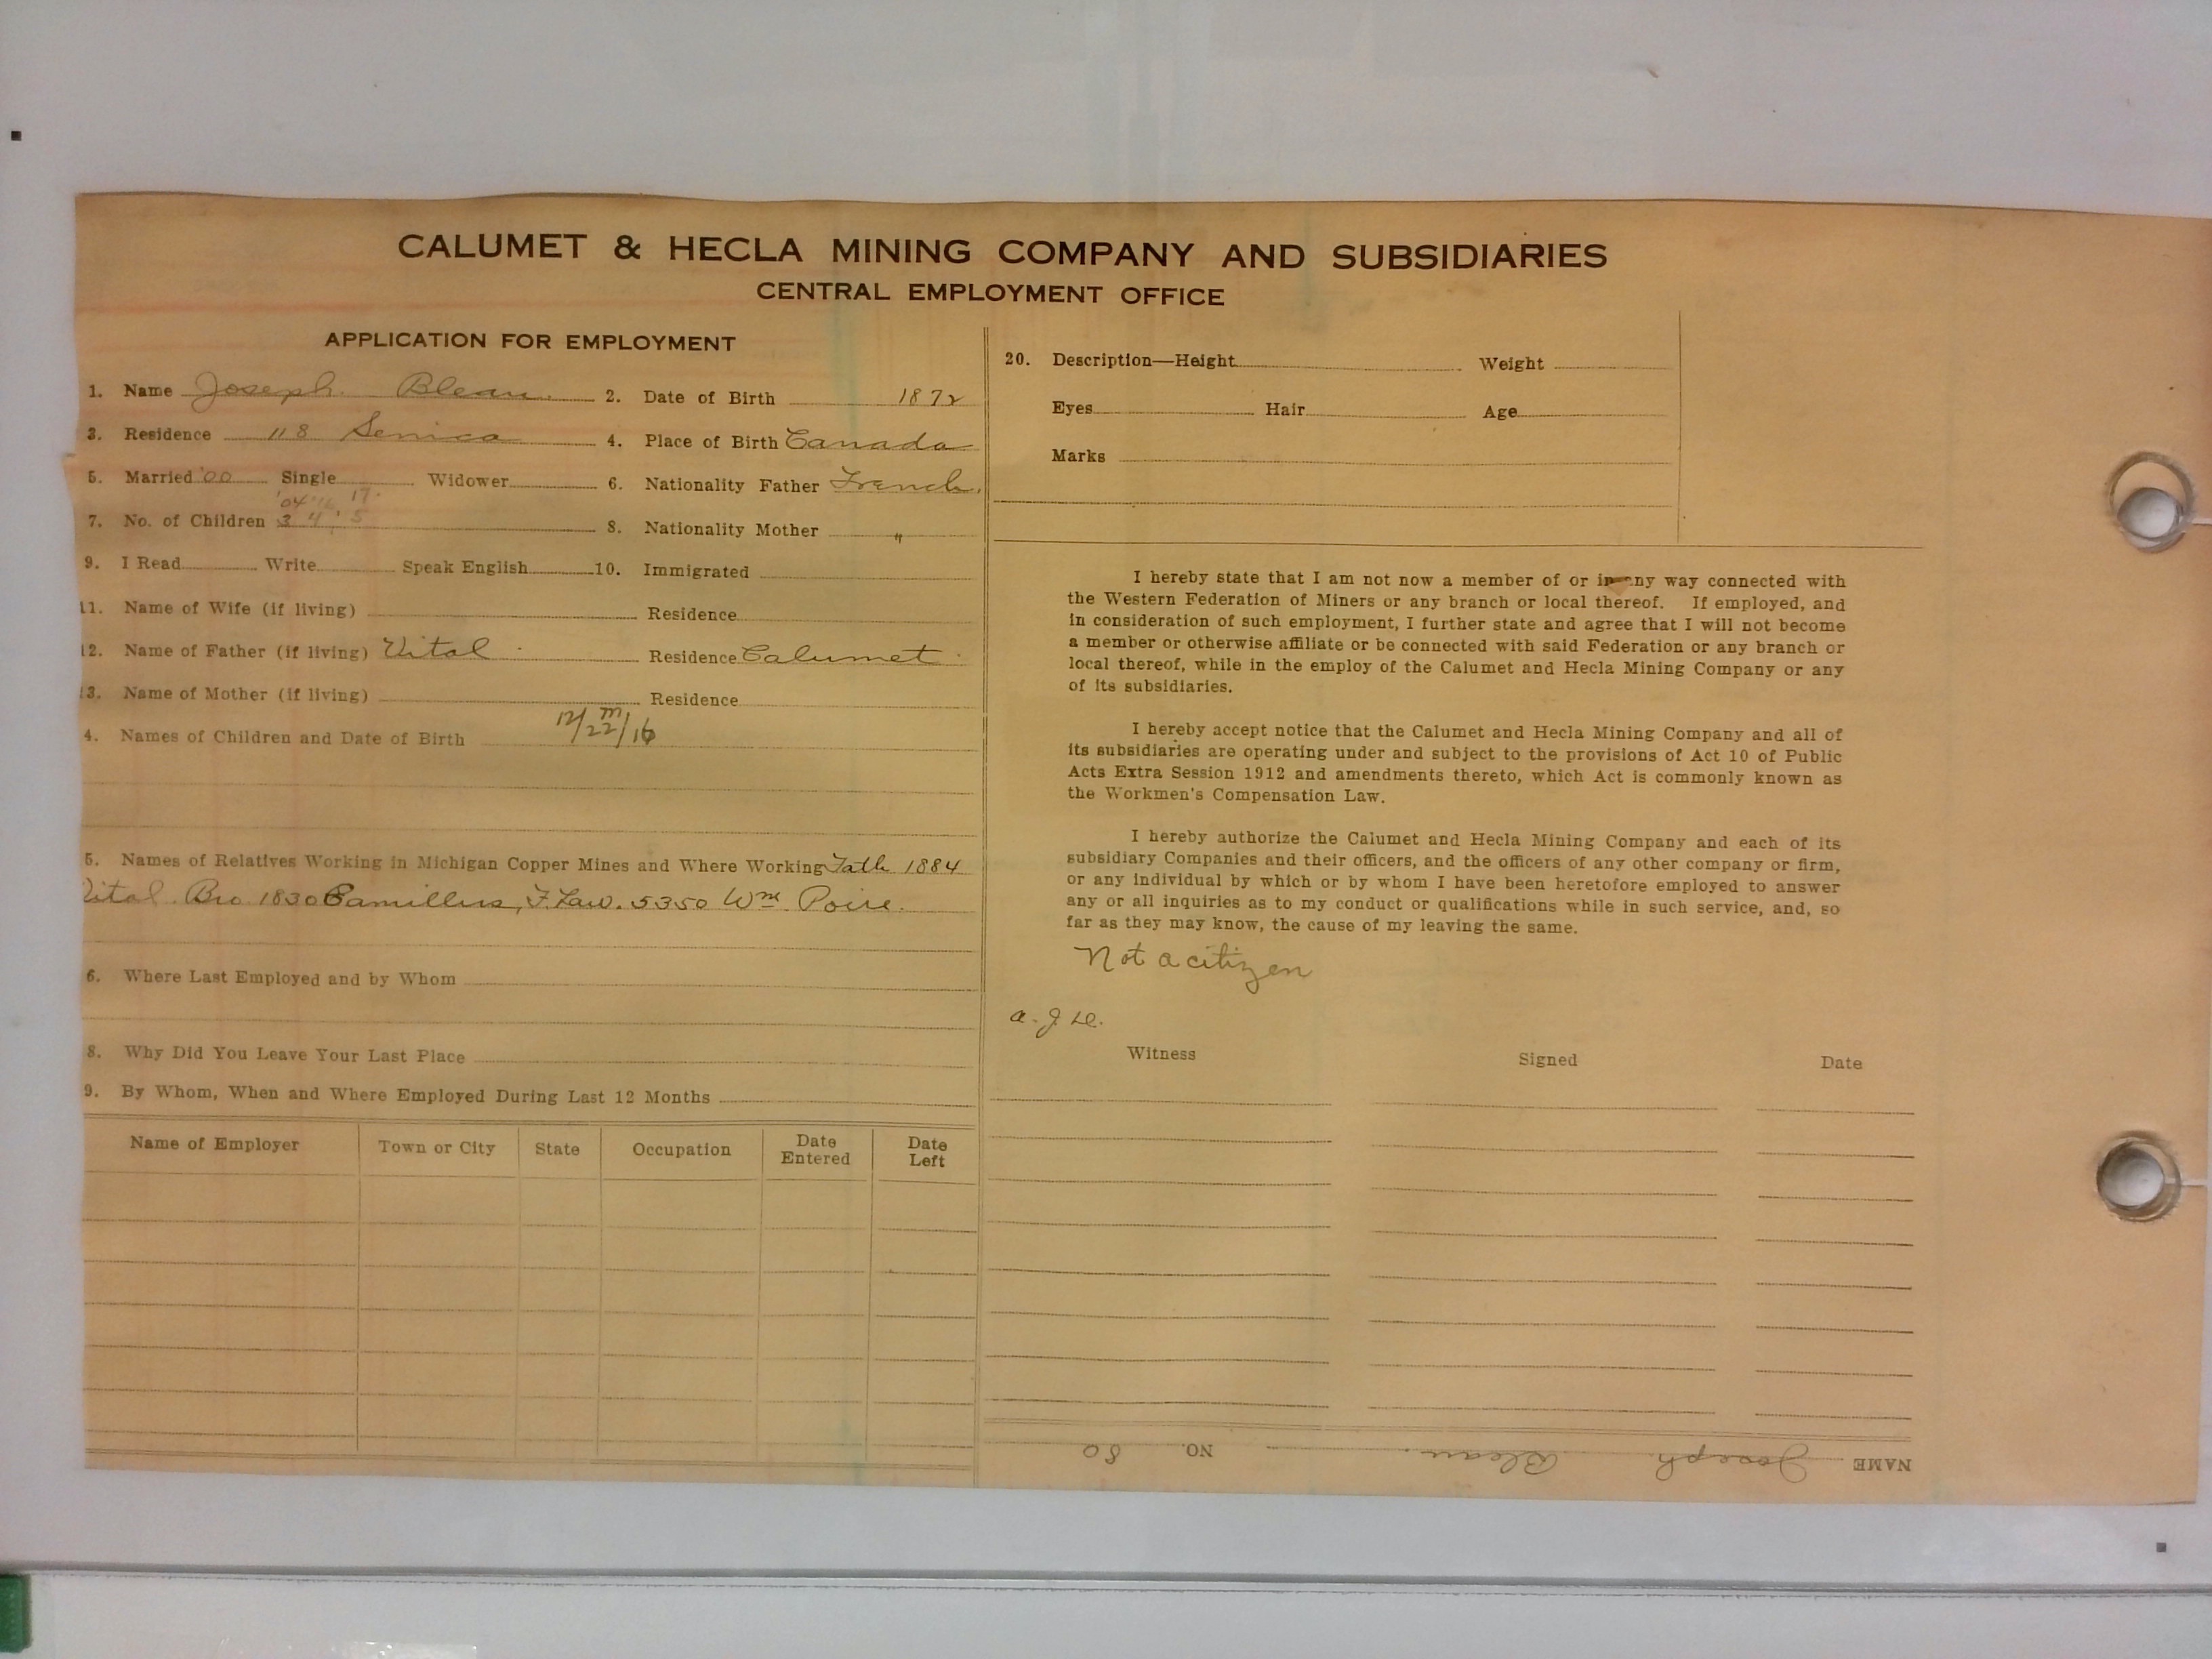 CALUMET & HECLA MINING COMPANY AND SUBSIDIARIES
CENTRAL EMPLOYMENT OFFICE
APPLICATION FOR EMPLOYMENT
1. Name Joseph Bleau 2. Date of Birth 1872
3. Residence 118 Senica 4. Place of Birth Canada
5. Married '00 Single Widower 6. Nationality Father French
'04 '16 17.
7. No. of Children 3 4, 5 8. Nationality Mother "
9. I Read Write Speak English 10. Immigrated
11. Name of Wife (if living) Residence
12. Name of Father (if living) Vital Residence Calumet
13. Name of Mother (if living) Residence
4. Names of Children and Date of Birth 12/22/16 m
5. Names of Relatives Working in Michigan Copper Mines and Where Working Fath 1884
Vital Bro 1830 Camillus, F. Law. 5350 Wm Poire.
6. Where Last Employed and by Whom
8. Why Did You Leave Your Last Place
9. By Whom, When and Where Employed During Last 12 Months
Name of Employer Town or City State Occupation Date Entered Date Left
20. Description—Height Weight
Eyes Hair Age
Marks
I hereby state that I am not now a member of or in any way connected with
the Western Federation of Miners or any branch or local thereof. If employed, and
in consideration of such employment, I further state and agree that I will not become
a member or otherwise affiliate or be connected with said Federation or any branch or
local thereof, while in the employ of the Calumet and Hecla Mining Company or any
of its subsidiaries.
I hereby accept notice that the Calumet and Hecla Mining Company and all of
its subsidiaries are operating under and subject to the provisions of Act 10 of Public
Acts Extra Session 1912 and amendments thereto, which Act is commonly known as
the Workmen's Compensation Law.
I hereby authorize the Calumet and Hecla Mining Company and each of its
subsidiary Companies and their officers, and the officers of any other company or firm,
or any individual by which or by whom I have been heretofore employed to answer
any or all inquiries as to my conduct or qualifications while in such service, and, so
far as they may know, the cause of my leaving the same.
Not a citizen
a. J.
Witness Signed Date
NAME Joseph Bleau NO. 80